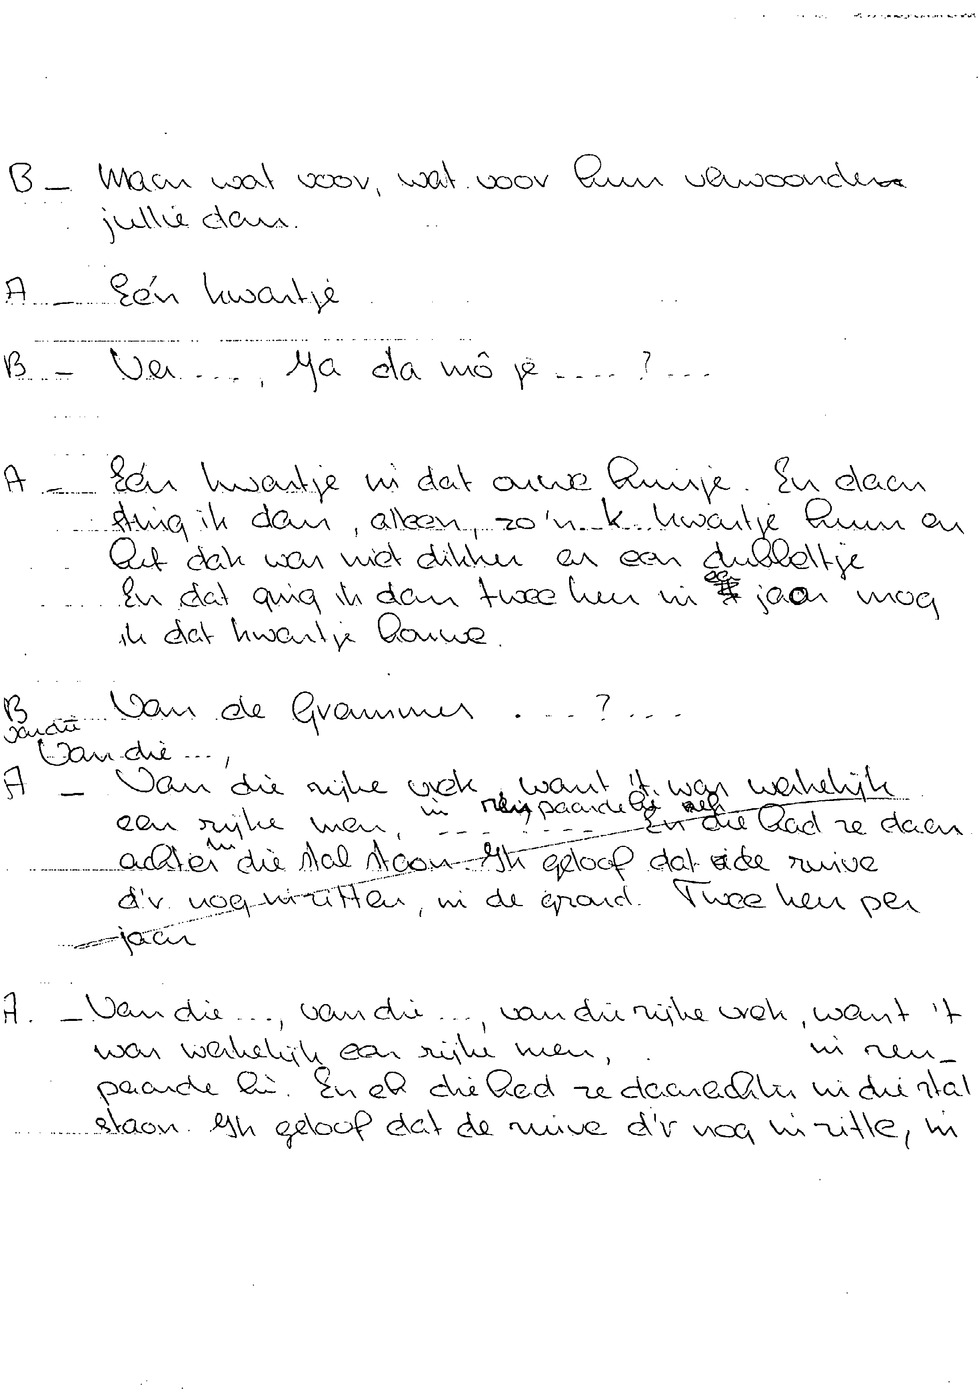 B – Maar wat voor, wat voor huur verwoonde
jullie dan.
A – Eén kwartje
B – Ver ...., Ja da mô je ..... ? ...
A – Eén kwartje in dat ouwe huisje. En daan
ging ik dan, alleen, zo'n k kwartje huur en
het dak was niet dikker as een dubbeltje
En dat ging ik dan twee keer in 't jaar mog
ik dat kwartje houwe.
B – Van de Grammes .... ? ...
van die
Van die ...,
A – Van die rijke vrek, want 't was werkelijk
een rijke men, in ren paarde hi eh
........ En die had ze daar
achter in die stal staon. Ik geloof dat de ruive
d'r nog in zitten, in de grond. Twee keer per
jaar
A. – Van die ..., van die ..., van die rijke vrek, want 't
was werkelijk een rijke men, in ren–
paarde hi. En eh die had ze daarachter in die stal
staon. Ik geloof dat de ruive d'r nog in zitte, in